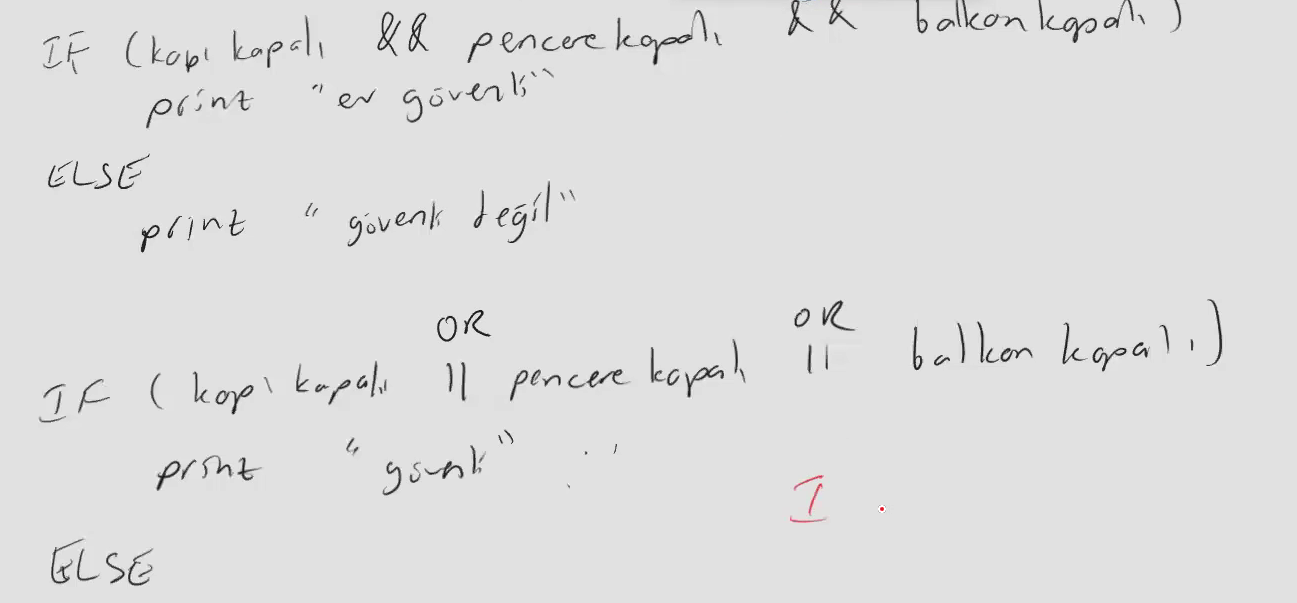 IF (kapı kapalı && pencere kapalı && balkon kapalı)
print "ev güvenli"
ELSE
print "güvenli değil"
OR OR
IF (kapı kapalı || pencere kapalı || balkon kapalı)
print "güvenli"
I
ELSE